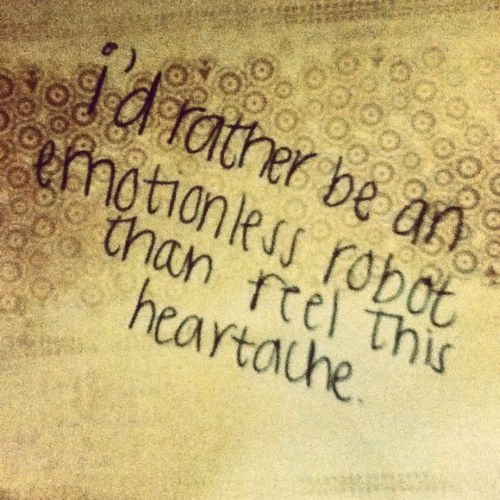 i'd rather be an
emotionless robot
than feel this
heartache.